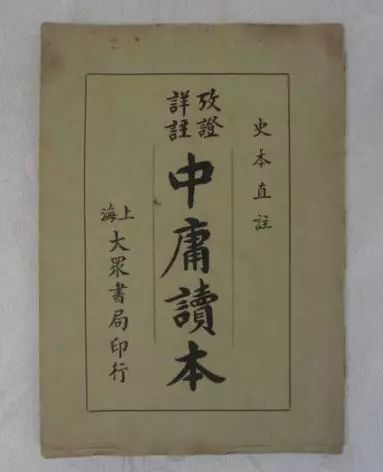 史本直註
攷證
詳註
中庸讀本
上海
大眾書局印行